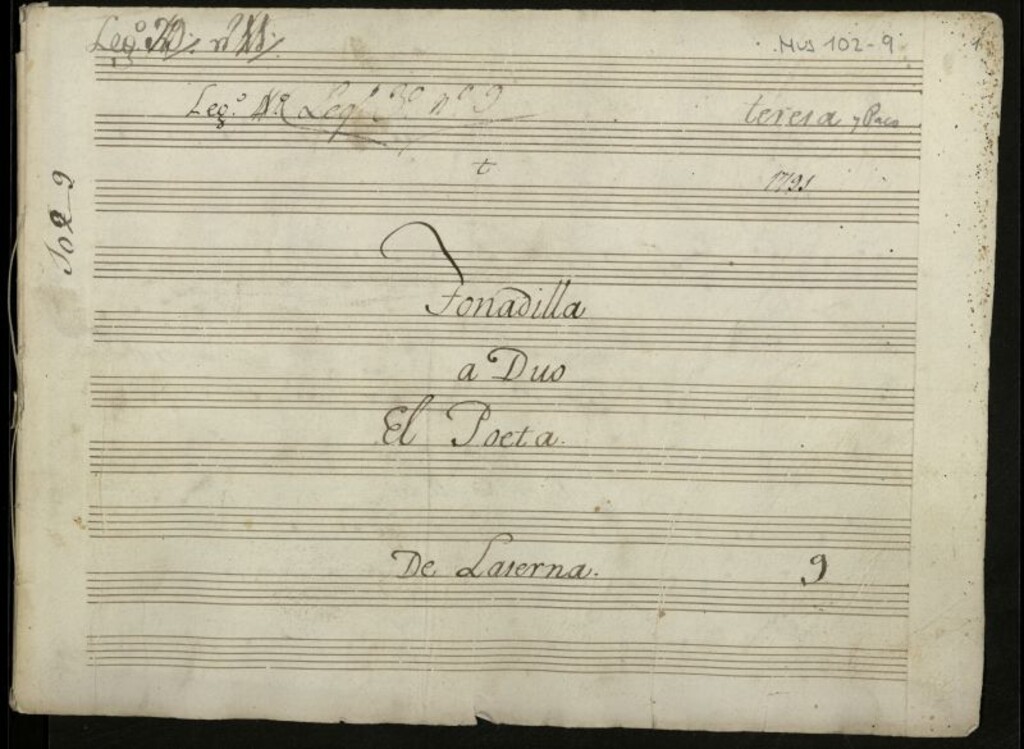 Leg.º nº
Mus 102-9
1
Leg.º Leg.º 3º nº 9
teresa y Paco
t
1791
102-9
Tonadilla
a Duo
El Poeta.
De Laserna.
9